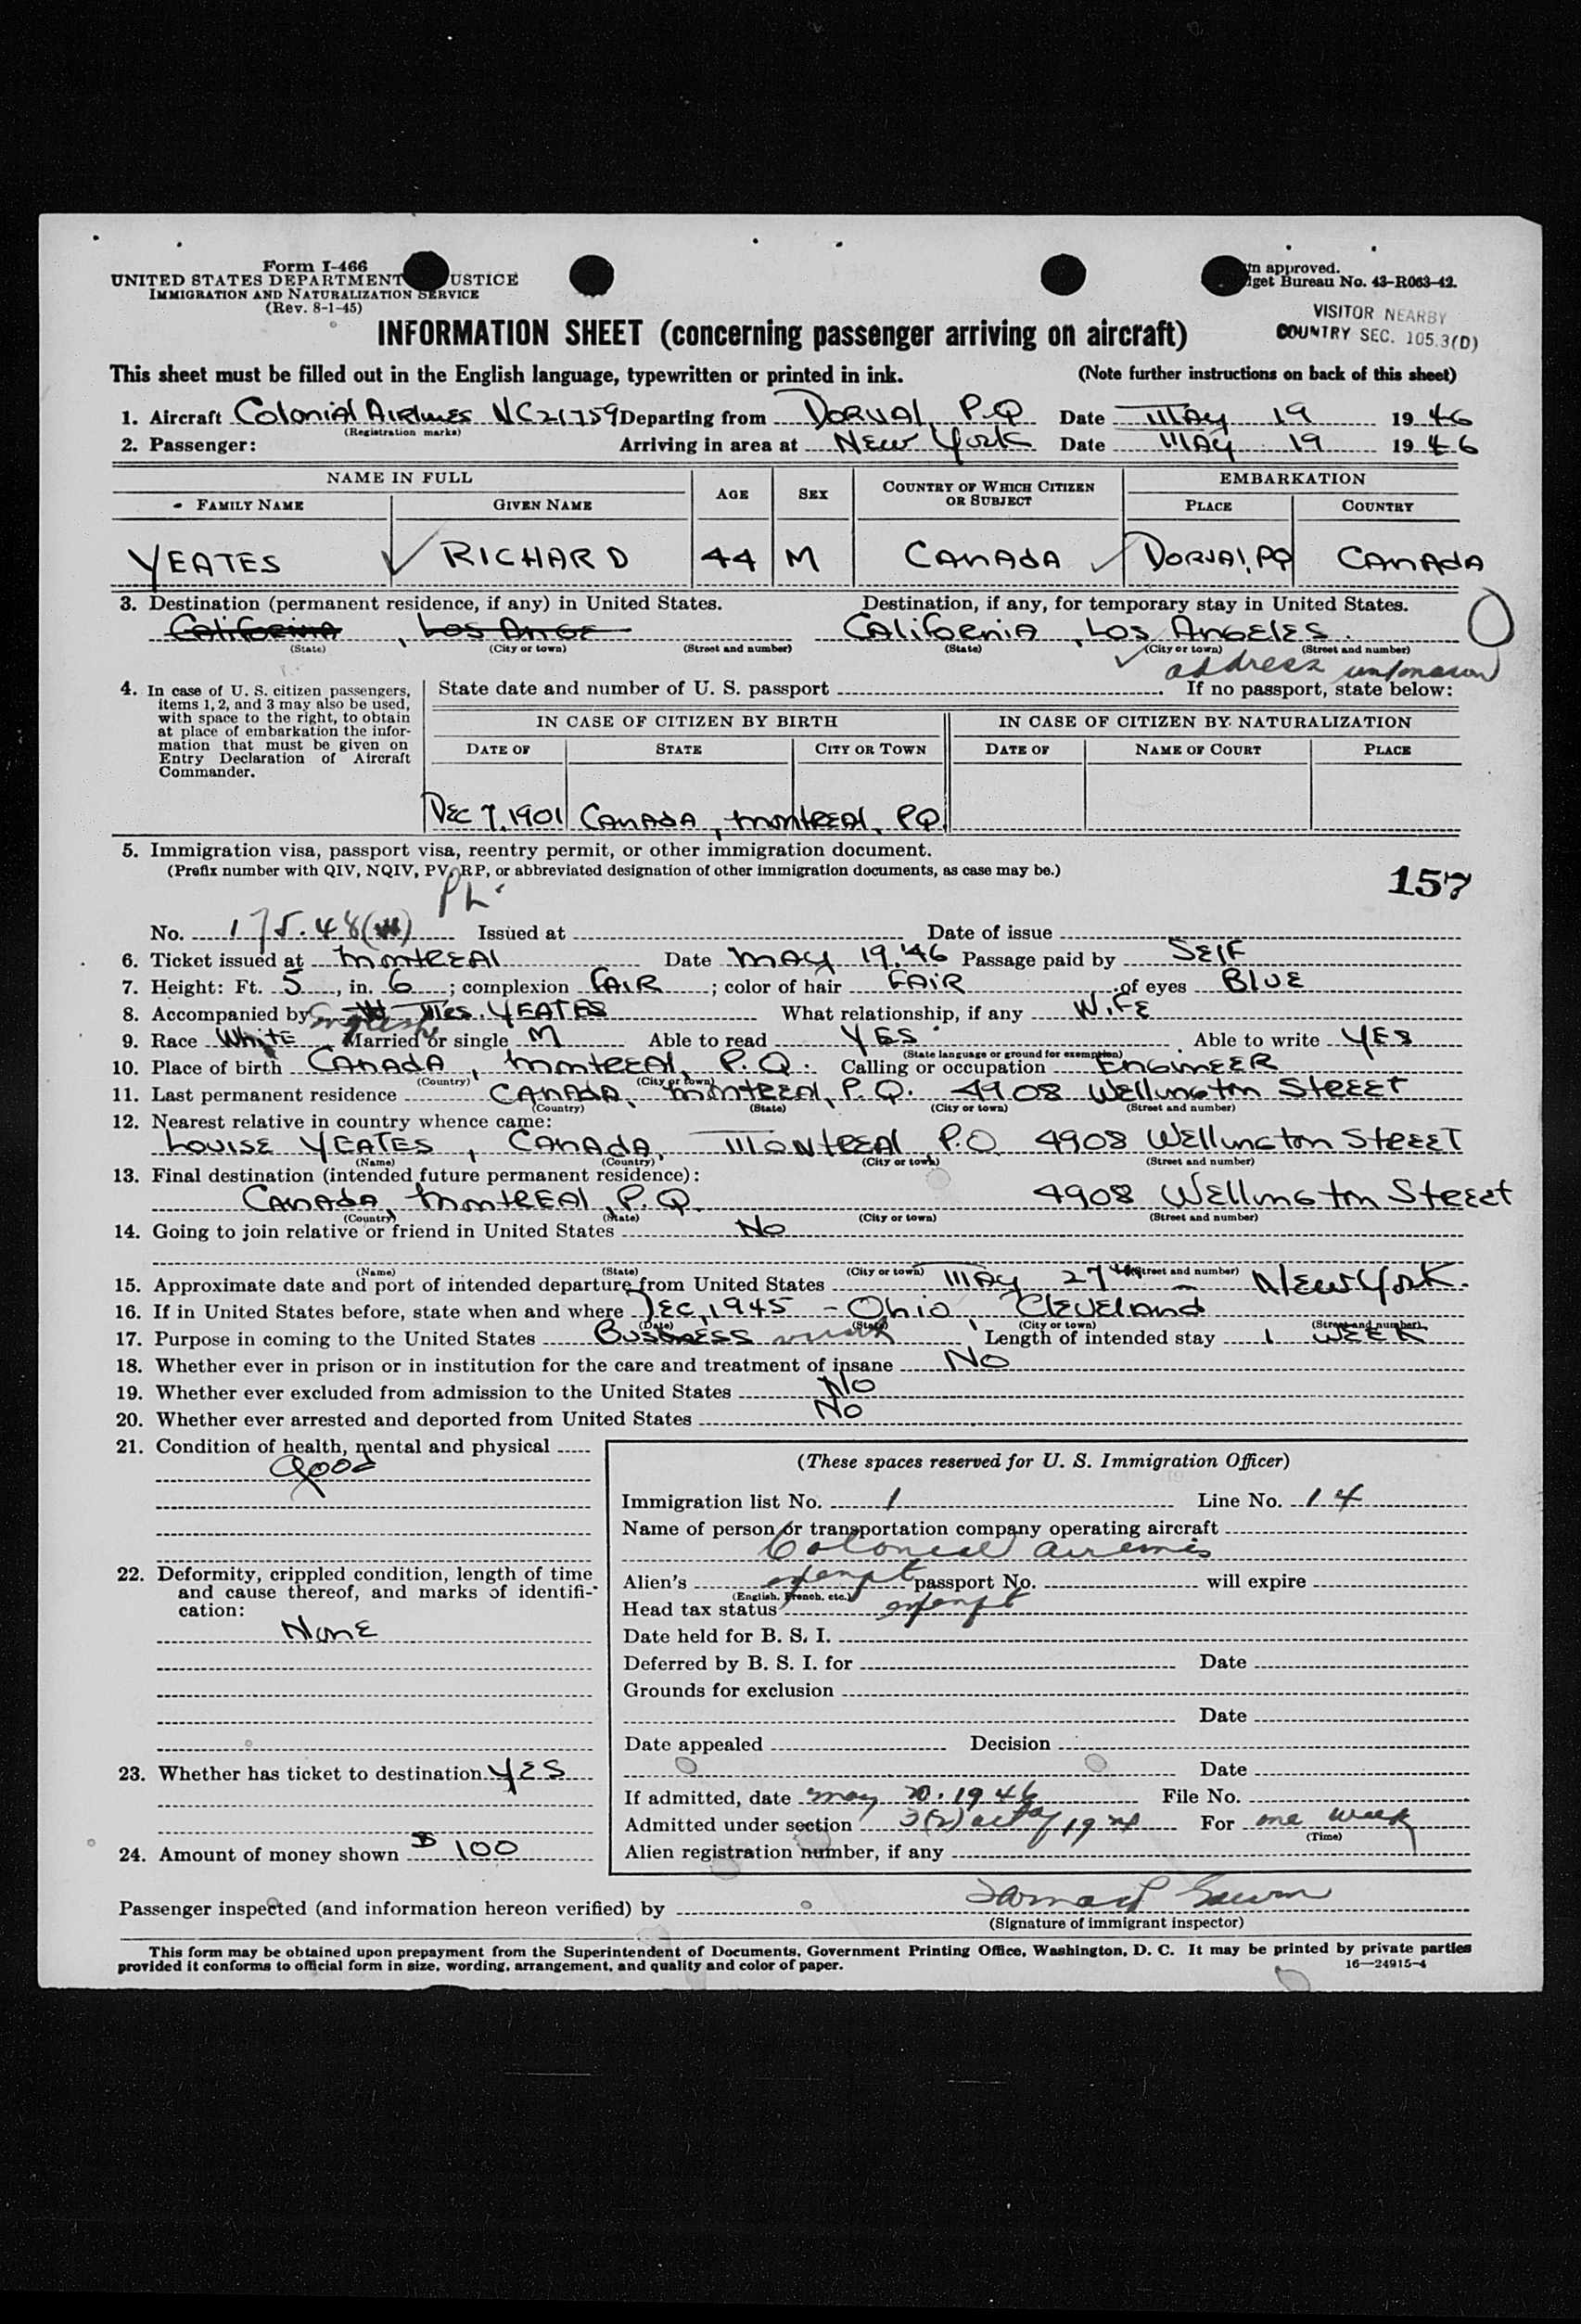 Form I-466
UNITED STATES DEPARTMENT USTICE
IMMIGRATION AND NATURALIZATION SERVICE
(Rev. 8-1-45)
m approved.
get Bureau No. 43-R063-42.
VISITOR NEARBY
COUNTRY SEC. 105.3(D)
INFORMATION SHEET (concerning passenger arriving on aircraft)
This sheet must be filled out in the English language, typewritten or printed in ink. (Note further instructions on back of this sheet)
1. Aircraft Colonial Airlines NC21759 Departing from Dorval, P.Q Date May 19 1946
(Registration marks)
2. Passenger: Arriving in area at New York Date May 19 1946
NAME IN FULL AGE SEX COUNTRY OF WHICH CITIZEN OR SUBJECT EMBARKATION
FAMILY NAME GIVEN NAME PLACE COUNTRY
YEATES RICHARD 44 M CANADA DORVAL, PQ CANADA
3. Destination (permanent residence, if any) in United States. Destination, if any, for temporary stay in United States.
California, Los Ange California, Los Angeles.
(State) (City or town) (Street and number) (State) (City or town) (Street and number)
address unknown
4. In case of U. S. citizen passengers, items 1, 2, and 3 may also be used, with space to the right, to obtain at place of embarkation the information that must be given on Entry Declaration of Aircraft Commander.
State date and number of U. S. passport . If no passport, state below:
IN CASE OF CITIZEN BY BIRTH IN CASE OF CITIZEN BY NATURALIZATION
DATE OF STATE CITY OR TOWN DATE OF NAME OF COURT PLACE
Dec 7, 1901 Canada, Montreal, PQ
5. Immigration visa, passport visa, reentry permit, or other immigration document.
(Prefix number with QIV, NQIV, PV, RP, or abbreviated designation of other immigration documents, as case may be.)
157
No. 175.48 Issued at Date of issue
6. Ticket issued at Montreal Date May 19, '46 Passage paid by Self
7. Height: Ft. 5, in. 6; complexion Fair; color of hair Fair of eyes Blue
8. Accompanied by Mrs. YEATES What relationship, if any Wife
English
9. Race White Married or single M Able to read YES Able to write YES
(State language or ground for exemption)
10. Place of birth Canada, Montreal, P.Q. Calling or occupation Engineer
(Country) (City or town)
11. Last permanent residence Canada, Montreal, P.Q. 4908 Wellington Street
(Country) (State) (City or town) (Street and number)
12. Nearest relative in country whence came:
Louise YEATES, Canada, Montreal P.Q. 4908 Wellington Street
(Name) (Country) (City or town) (Street and number)
13. Final destination (intended future permanent residence):
Canada, Montreal, P.Q. 4908 Wellington Street
(Country) (State) (City or town) (Street and number)
14. Going to join relative or friend in United States No
(Name) (State) (City or town) (Street and number)
15. Approximate date and port of intended departure from United States May 27th - New York.
16. If in United States before, state when and where Dec, 1945 - Ohio, Cleveland
(Date) (State) (City or town) (Street and number)
17. Purpose in coming to the United States Business Length of intended stay 1 week
18. Whether ever in prison or in institution for the care and treatment of insane No
19. Whether ever excluded from admission to the United States No
20. Whether ever arrested and deported from United States No
21. Condition of health, mental and physical
Good
22. Deformity, crippled condition, length of time and cause thereof, and marks of identification:
None
23. Whether has ticket to destination YES
24. Amount of money shown $ 100
(These spaces reserved for U. S. Immigration Officer)
Immigration list No. 1 Line No. 14
Name of person or transportation company operating aircraft
Colonial Airlines
Alien's exempt passport No. will expire
(English, French, etc.)
Head tax status exempt
Date held for B. S. I.
Deferred by B. S. I. for Date
Grounds for exclusion
Date
Date appealed Decision
Date
If admitted, date May 20, 1946 File No.
Admitted under section 3(2) act of 1924 For one week
(Time)
Alien registration number, if any
Passenger inspected (and information hereon verified) by
(Signature of immigrant inspector)
This form may be obtained upon prepayment from the Superintendent of Documents, Government Printing Office, Washington, D. C. It may be printed by private parties
provided it conforms to official form in size, wording, arrangement, and quality and color of paper. 16—24915-4